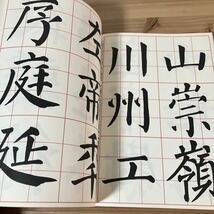 山崇嶺
川州工
左帝
序庭延